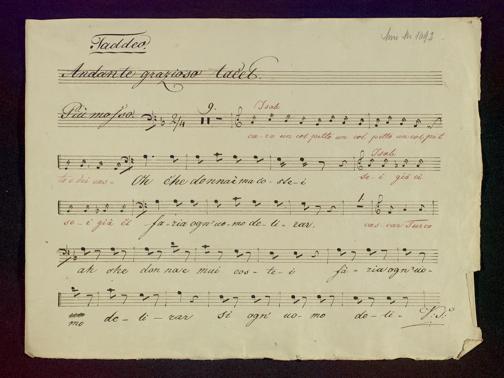 Taddeo
Andante grazioso tacet.
Più mosso. 2/4 9. Isab
ca-ro un col petto un col petto un col pet
to e dei cas- Oh che donna è ma co-ste-i Isab. se-i già ci
se-i già ci fa-ria ogn'uo-mo de-li-rar. 1 cas-car Turco
ah che don-na è mai cos-te-i fa-ria ogn'uo-
mo de-li-rar si ogn'uo-mo de-li-
V.S.